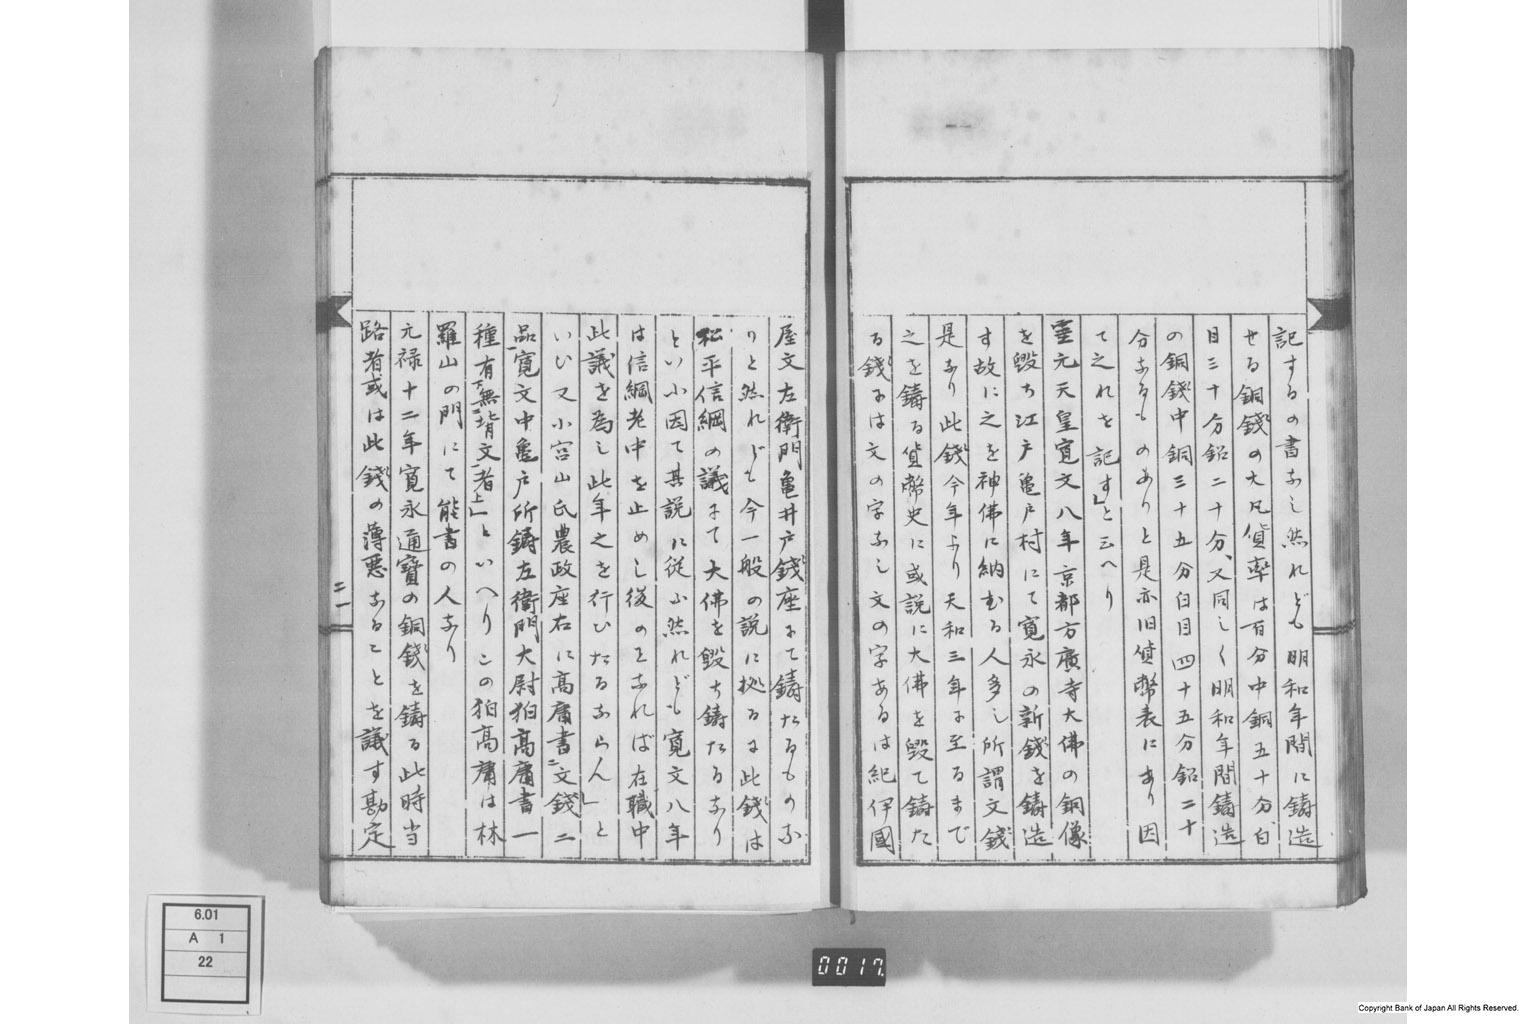 記するの書なし然れども明和年間に鋳造
せる銅錢の大凡貨率は百分中銅五十分白
目三十分鉛二十分、又同しく明和年間鋳造
の銅錢中銅三十五分白目四十五分鉛二十
分なるものありと是亦旧貨幣表にあり因
て之れを記す」と云へり
霊元天皇寛文八年京都方廣寺大佛の銅像
を毀ち江戸亀戸村にて寛永の新錢を鋳造
す故に之を神佛に納むる人多し所謂文錢
是なり此錢今年より天和三年に至るまで
之を鋳る貨幣史に或説に大佛を毀て鋳た
る錢には文の字なし文の字あるは紀伊國
屋文左衛門亀井戸錢座にて鋳たるものな
りと然れども今一般の説に拠るに此錢は
松平信綱の議にて大佛を毀ち鋳たるなり
といふ因て其説に従ふ然れども寛文八年
は信綱老中を止めし後の
なれば在職中
此議を為し此年之を行ひたるならん」と
いひ又小宮山氏農政座右に高庸書二文錢二
品寛文中亀戸所鋳左衛門大尉狛高庸書一
種有下無二背文一者上」といへりこの狛高庸は林
羅山の門にて能書の人なり
元禄十二年寛永通寶の銅錢を鋳る此時当
路者或は此錢の薄悪なることを議す勘定
二一
6.01
A 1
22
0017.
Copyright Bank of Japan All Rights Reserved.